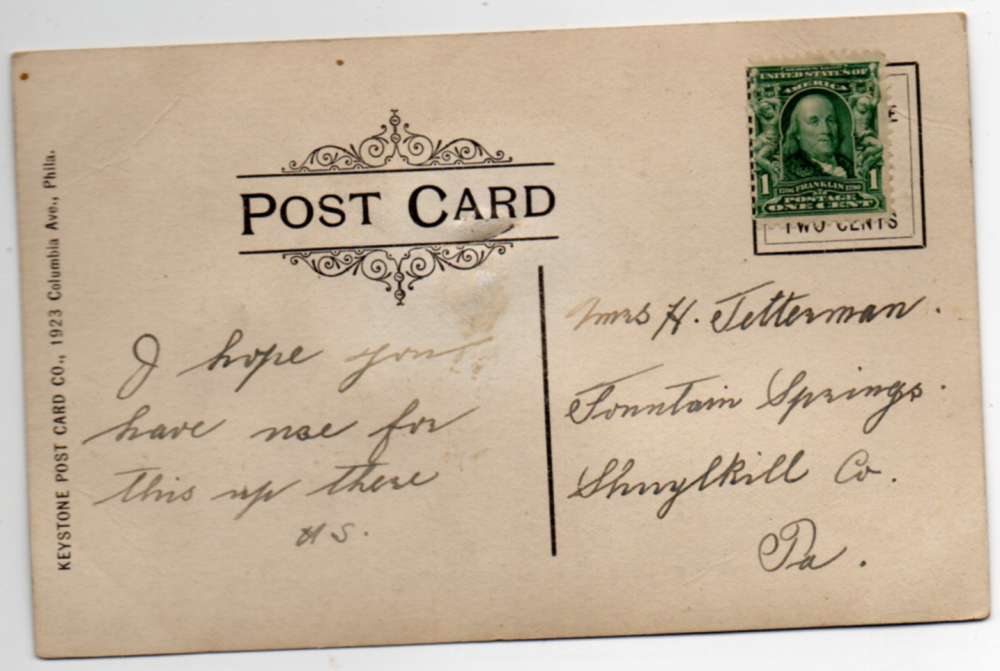 KEYSTONE POST CARD CO., 1923 Columbia Ave., Phila.
POST CARD
UNITED STATES OF
AMERICA
1 1706 FRANKLIN 1790 1
POSTAGE
ONE CENT
TWO CENTS
I hope you
have use for
this up there
S.
Mrs H. Fetterman.
Fountain Springs.
Shuylkill Co.
Pa.